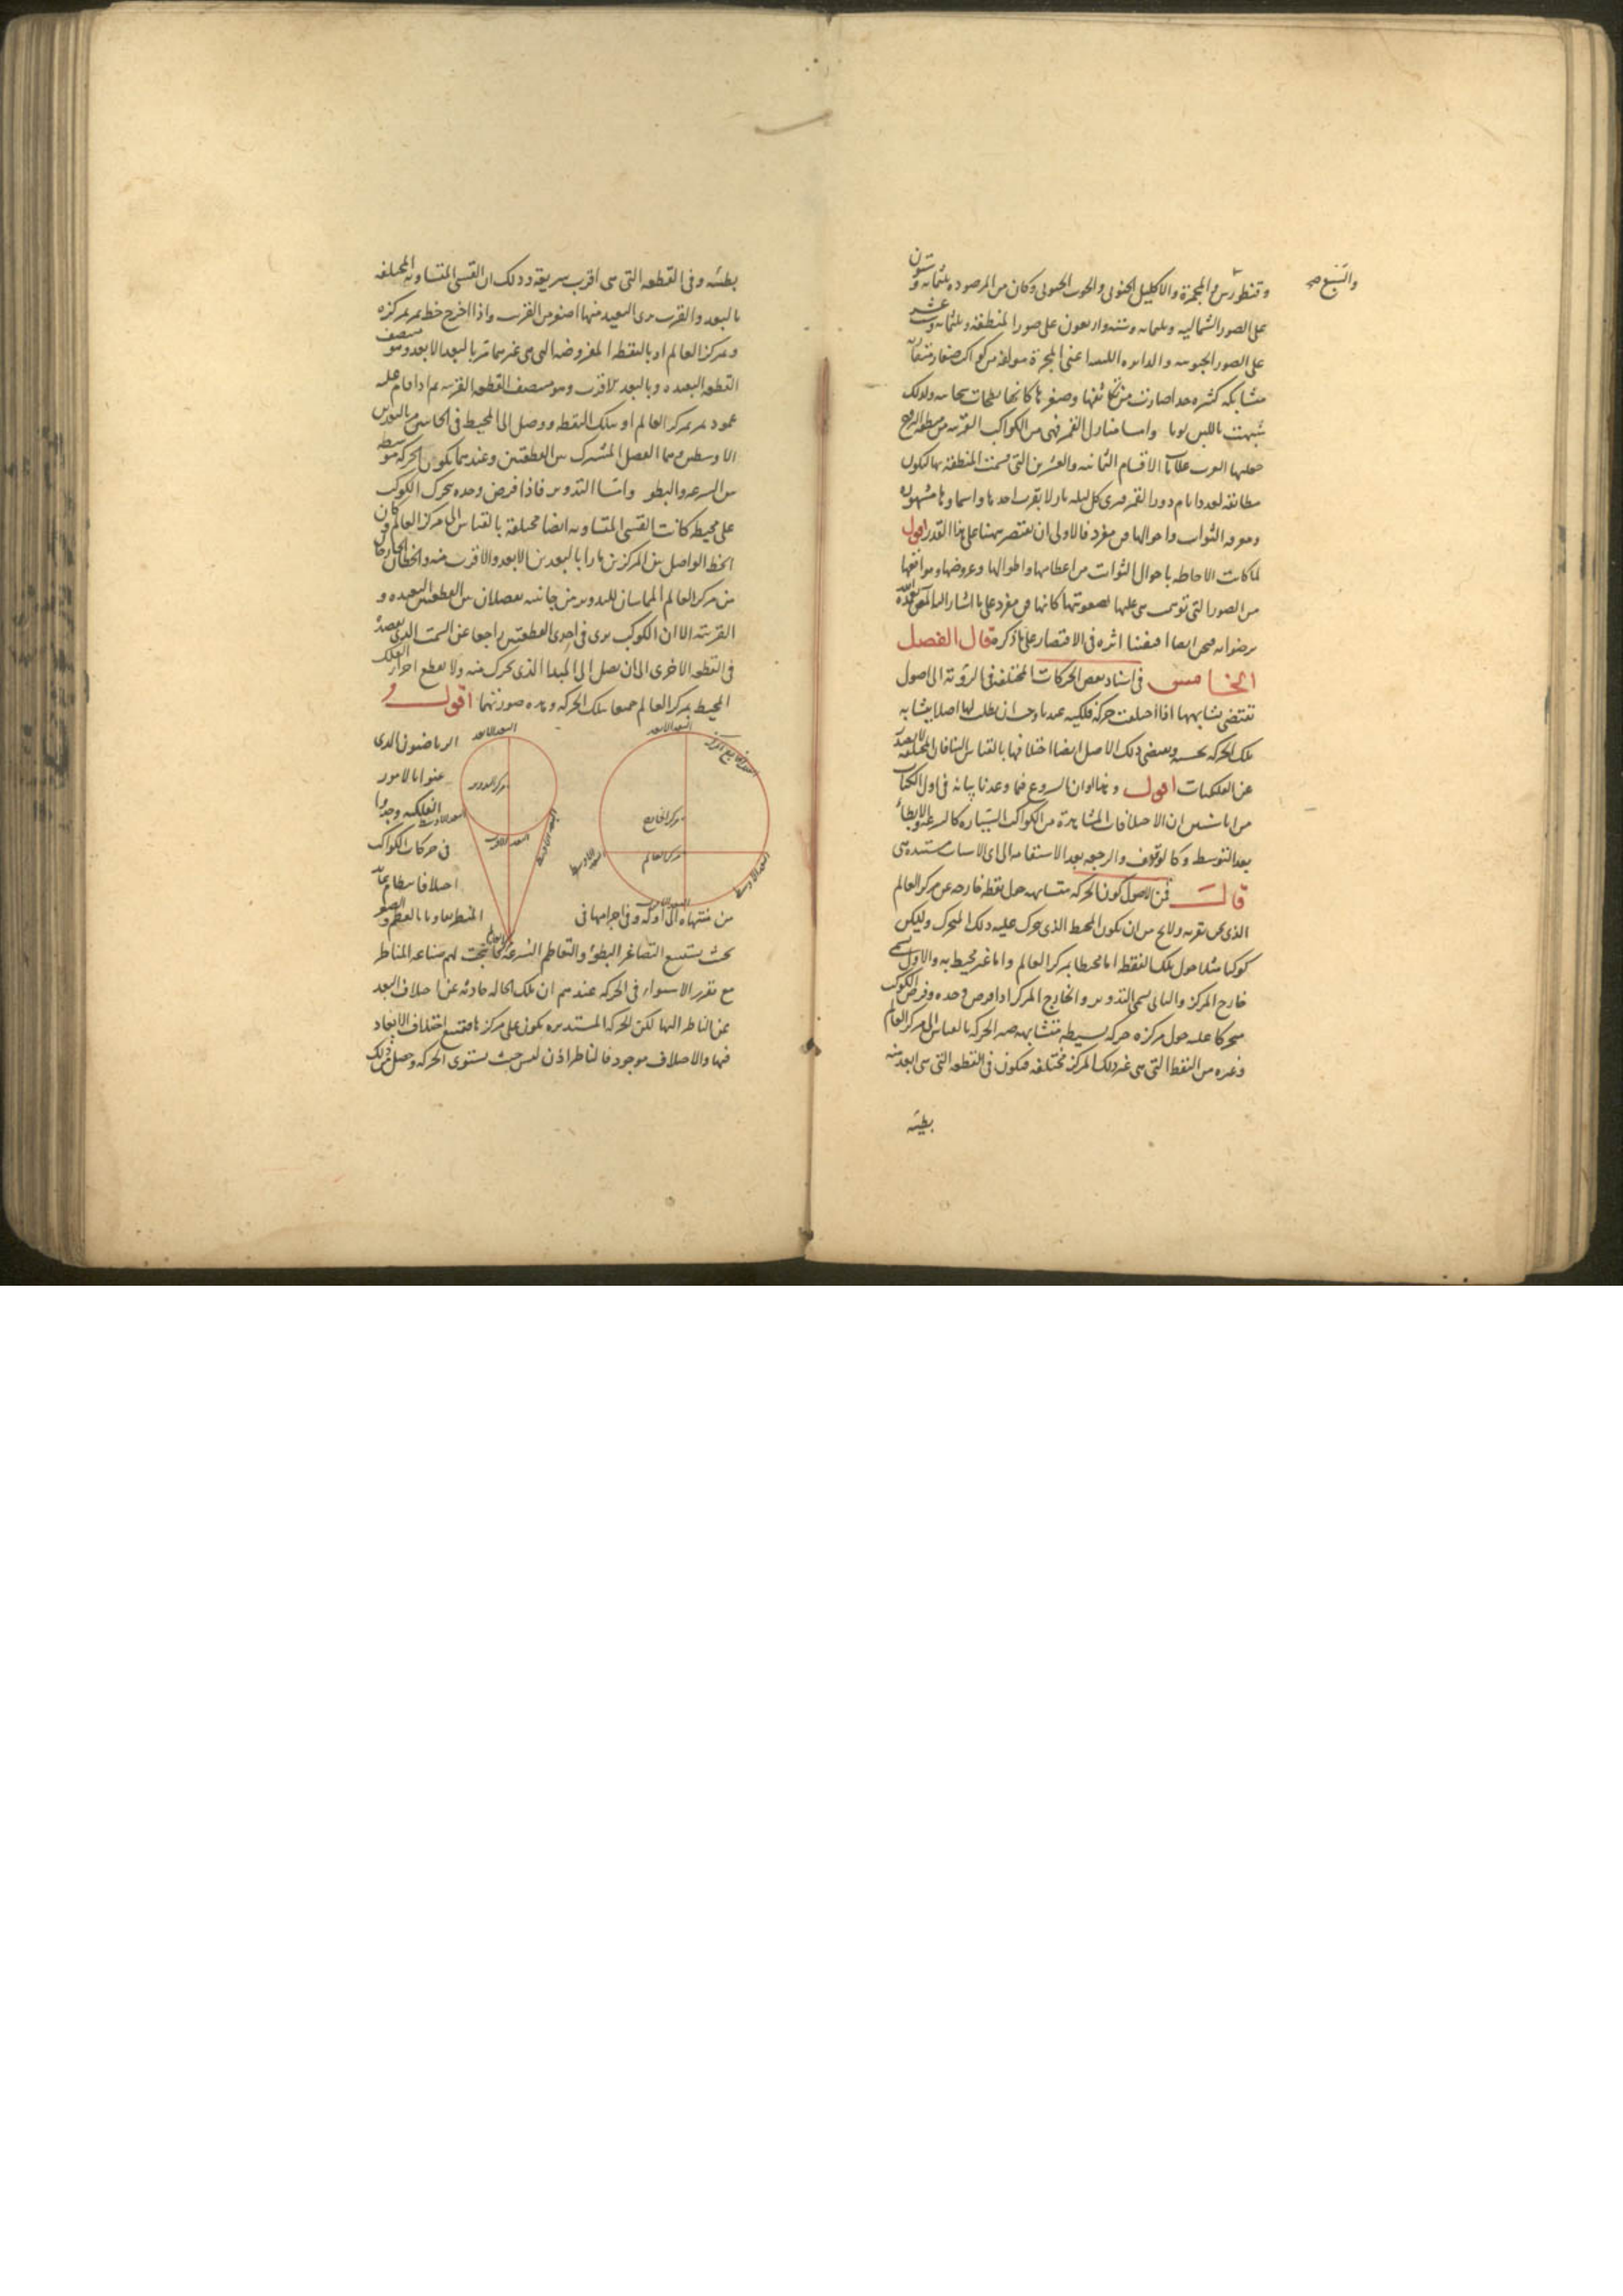 وقنطورس والمجمرة والاكليل الجنوبى والحوت الجنوبى وكان من المرصوده ثلثمائه وستون
والسبع صح
على الصور الشماليه وثلثمائه وسته واربعون على صور المنطقه وثلثمائه وستة عشر
على الصور الجنوبيه والدايره اللبنيه اعنى المجرة مولفه من كواكب صغار متقاربه
متشابكه كثيره جدا صارت من تكاثفها وصغرها كانها لطخات سحابيه ولذلك
شبهت باللبن لونا واما منازل القمر فهى من الكواكب القريبه من منطقه البروج
جعلها العرب علامات الاقسام الثمانيه والعشرين التى قسمت المنطقه بها ليكون
مطابقه لعدد ايام دور القمر فيرى كل ليله نازلا بقرب احدها واسماوها مشهوره
ومعرفه الثوابت واحوالها فن مفرد فالاولى ان نقتصر ههنا على هذا القدر اقول
لما كانت الاحاطه باحوال الثوابت من اعظامها واطوالها وعروضها ومواقعها
من الصور التى توسى هى عليها لصعوبتها كانها فن مفرد على ما اشار اليه المصنف تغمده الله
برضوانه فنحن ايضا اقتفينا اثره فى الاقتصار على ما ذكره قال الفصل
الخامس فى اسناد بعض الحركات المختلفه فى الرؤيه الى اصول
تقتضى تشابهها اذا اختلفت حركة فلكيه عندنا وجب ان نطلب لها اصلا يتشابه
تلك الحركه بحسبه ويقتضى ذلك الاصل ايضا اختلافها بالقياس الينا فان المختلفه لا تصدر
عن الفلكيات اقول وهذا اوان الشروع فيما وعدنا بيانه فى اول الكتاب
من انا سنبين ان الاختلافات المشاهدة من الكواكب السياره كالسرعه والابطاء
بعد التوسط وكالوقوف والرجعه بعد الاستقامه الى اى الاسباب مستنده هى
قال فمن الاصول كون الحركه متشابهه حول نقطه خارجه عن مركز العالم
الذى نحن بقربه ولا يخ من ان يكون المحيط الذى يتحرك عليه ذلك المتحرك وليكن
كوكبا مثلا حول تلك النقطه اما محيطا بمركز العالم واما غير محيط به والاول يسمى
خارج المركز والثانى يسمى التدوير والخارج المركز اذا فرض وحده وفرض الكوكب
متحركا عليه حول مركزه حركه بسيطه متشابهه صه الحركه بالقياس الى مركز العالم
وغيره من النقط التى هى غير ذلك المركز مختلفه فيكون فى القطعه التى هى ابعد منه
بطيئه
بطيئه وفى القطعه التى هى اقرب سريعه وذلك ان القسى المتساويه المختلفه
بالبعد والقرب يرى البعيد منها اصغر من القريب واذا اخرج خط يمر بمركزه
وبمركز العالم او بالنقطه المفروضه التى هى غيرهما مر بالبعد الابعد وهو منتصف
القطعه البعيده وبالبعد الاقرب وهو منتصف القطعه القريبه ثم اذا قام عليه
عمود يمر بمركز العالم او بتلك النقطه ووصل الى المحيط فى الجانبين مر بالبعدين
الاوسطين وهما الفصل المشترك بين القطعتين وعندهما يكون الحركه متوسطه
بين السرعه والبطو واما التدوير فاذا فرض وحده يتحرك الكوكب
على محيطه كانت القسى المتساويه ايضا مختلفه بالقياس الى مركز العالم وكان
الخط الواصل بين المركزين مارا بالبعدين الابعد والاقرب منه والخطان الخارجان
من مركز العالم المماسان للتدوير من جانبيه يفصلان بين القطعتين البعيده و
القريبه الا ان الكوكب يرى فى احدى القطعتين راجعا عن السمت الذى يقصده
فى القطعه الاخرى الى ان يصل الى المبدا الذى تحرك منه ولا يقطع اجزاء الفلك
المحيط بمركز العالم جميعا بتلك الحركه وهذه صورتهما اقول و
البعد الابعد
مركز الخارج
مركز العالم
البعد الاقرب
البعد الاوسط
البعد الاوسط
البعد الابعد
مركز التدوير
البعد الاقرب
البعد الاوسط
البعد الاوسط
مركز العالم
الرياضيون الذى
عنوا بالامور
الفلكيه وجدوا
فى حركات الكواكب
اختلافا بنظام ما
من منتهاه الى اوله وفى اجرامها فى المنظر تفاوتا بالعظم والصغر
بحيث يستتبع التصاغر البطؤ والتعاظم السرعه فانتجت لهم صناعه المناظر
مع تقرر الاستواء فى الحركه عندهم ان تلك الحاله حادثه عن اختلاف البعد
عن الناظر اليها لكن الحركه المستديره يكون على مركزها فيمتنع اختلاف الابعاد
فيها والاختلاف موجود فالناظر اذن ليس حيث يستوى الحركه وحصل من ذلك